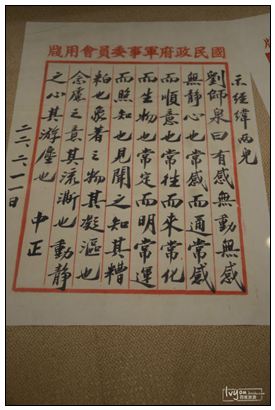 國民政府軍事委員會用牋
示經緯兩兒
劉師泉曰有感無動無感
無靜心也常感而通常應
而順意也常往而來常化
而生物也常定而明常運
而照知也見聞之知其糟
粕也象著之物其凝漚也
念慮之意其流澌也動靜
之心其游塵也 中正